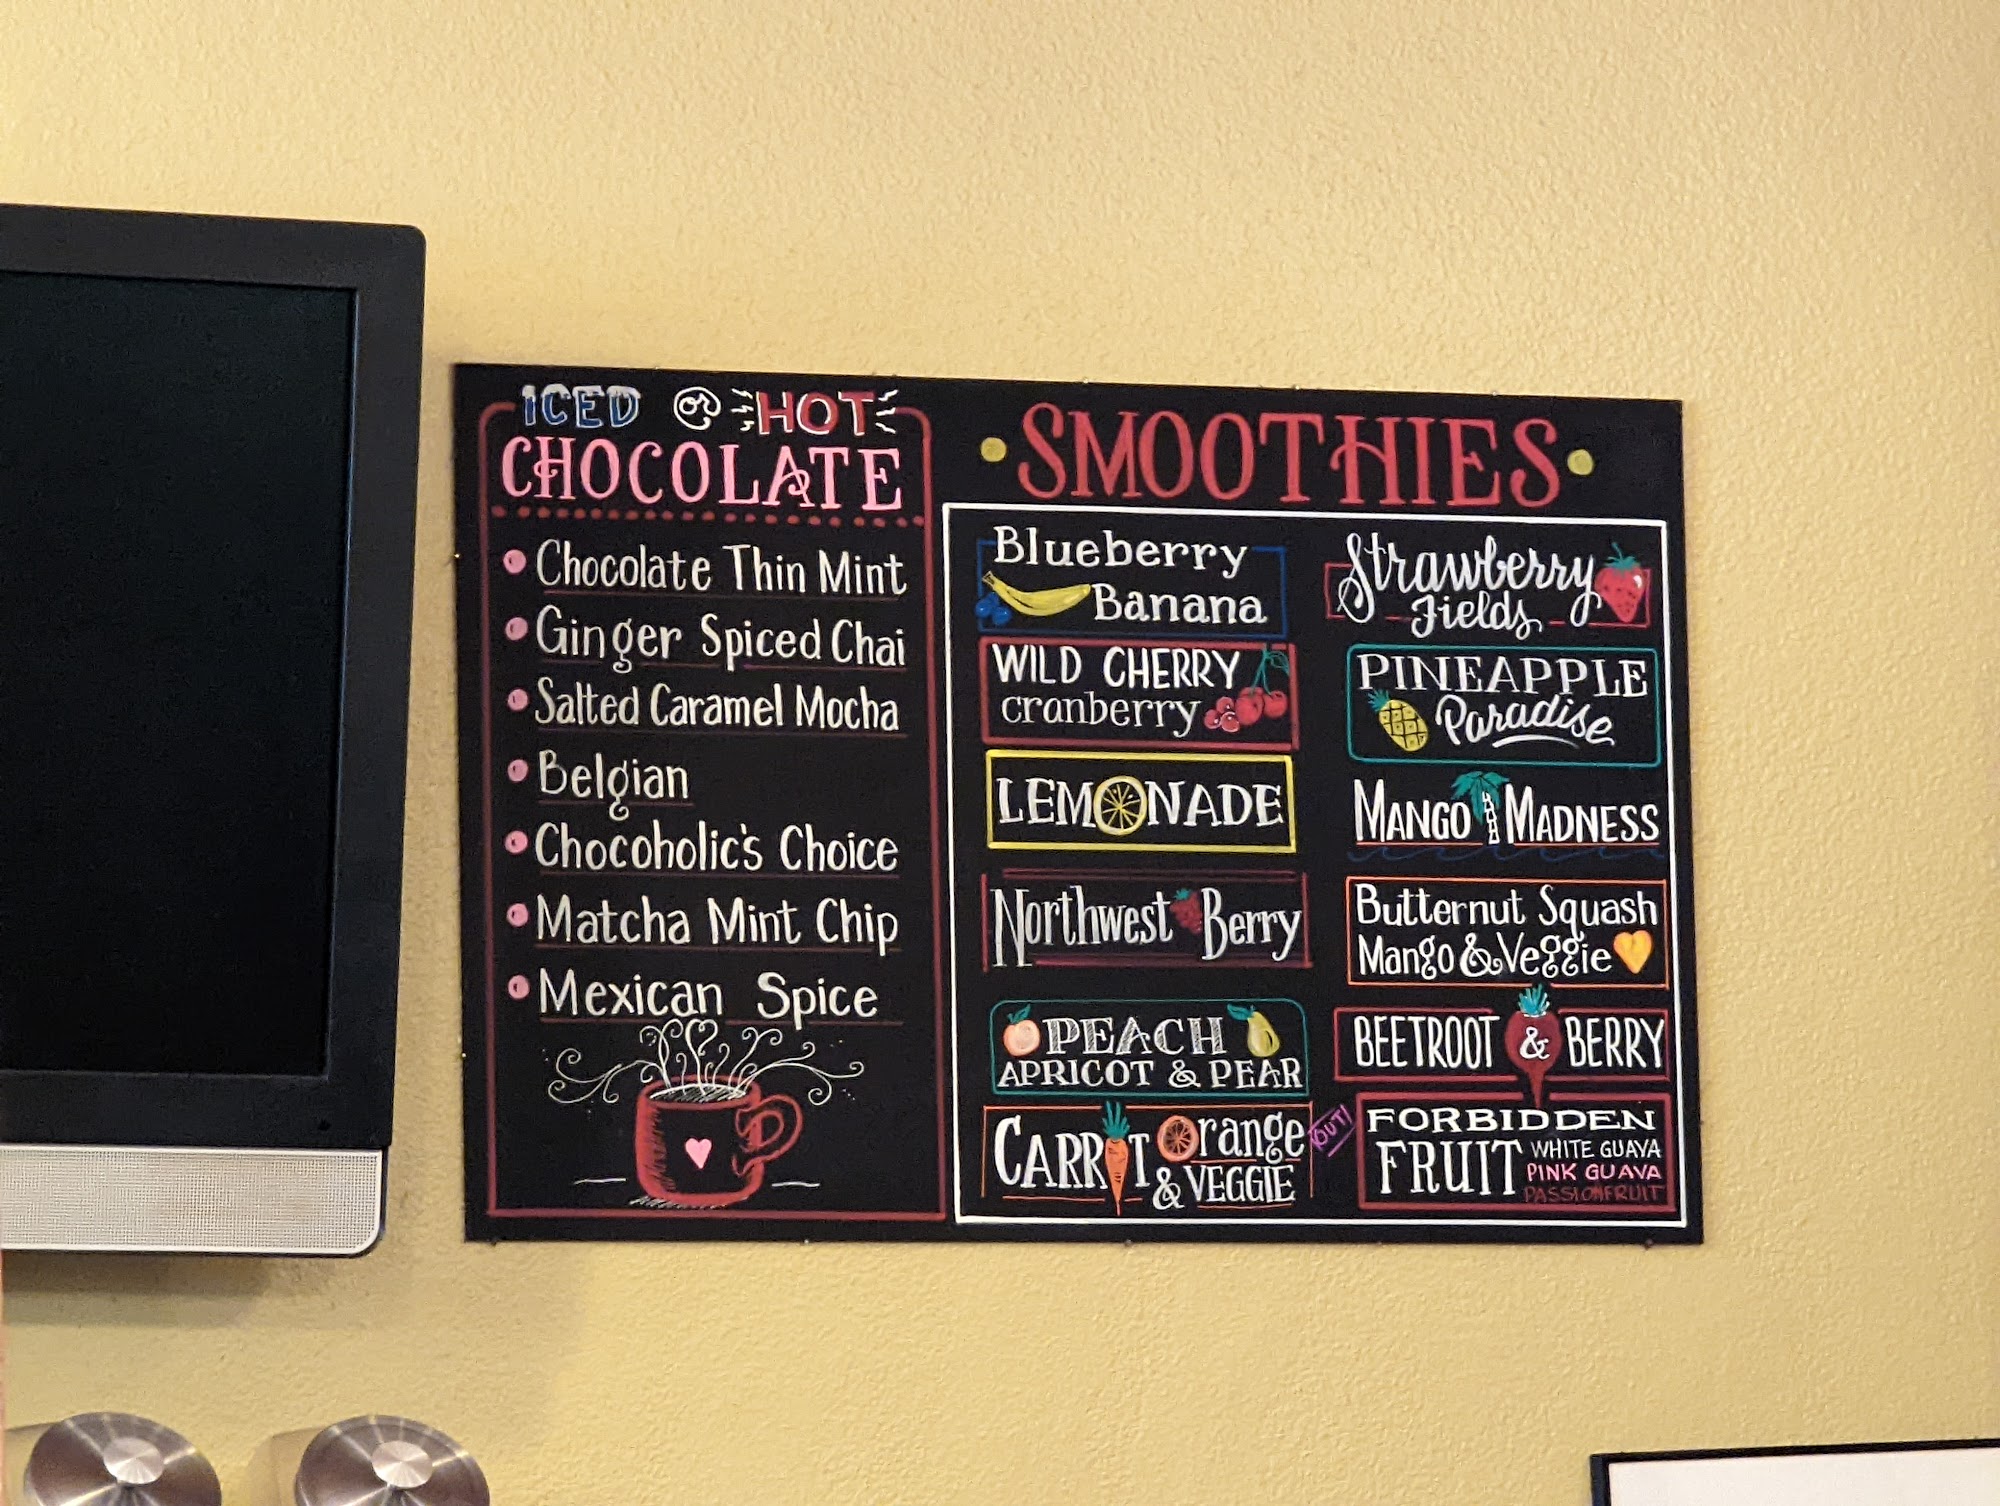 ICED or HOT
CHOCOLATE
Chocolate Thin Mint
Ginger Spiced Chai
Salted Caramel Mocha
Belgian
Chocoholic's Choice
Matcha Mint Chip
Mexican Spice
SMOOTHIES
Blueberry
Banana
WILD CHERRY
cranberry
LEMONADE
Northwest Berry
PEACH
APRICOT & PEAR
CARROT Orange
& VEGGIE
OUT!
Strawberry
Fields
PINEAPPLE
Paradise
MANGO MADNESS
Butternut Squash
Mango & Veggie
BEETROOT & BERRY
FORBIDDEN
FRUIT
WHITE GUAVA
PINK GUAVA
PASSIONFRUIT